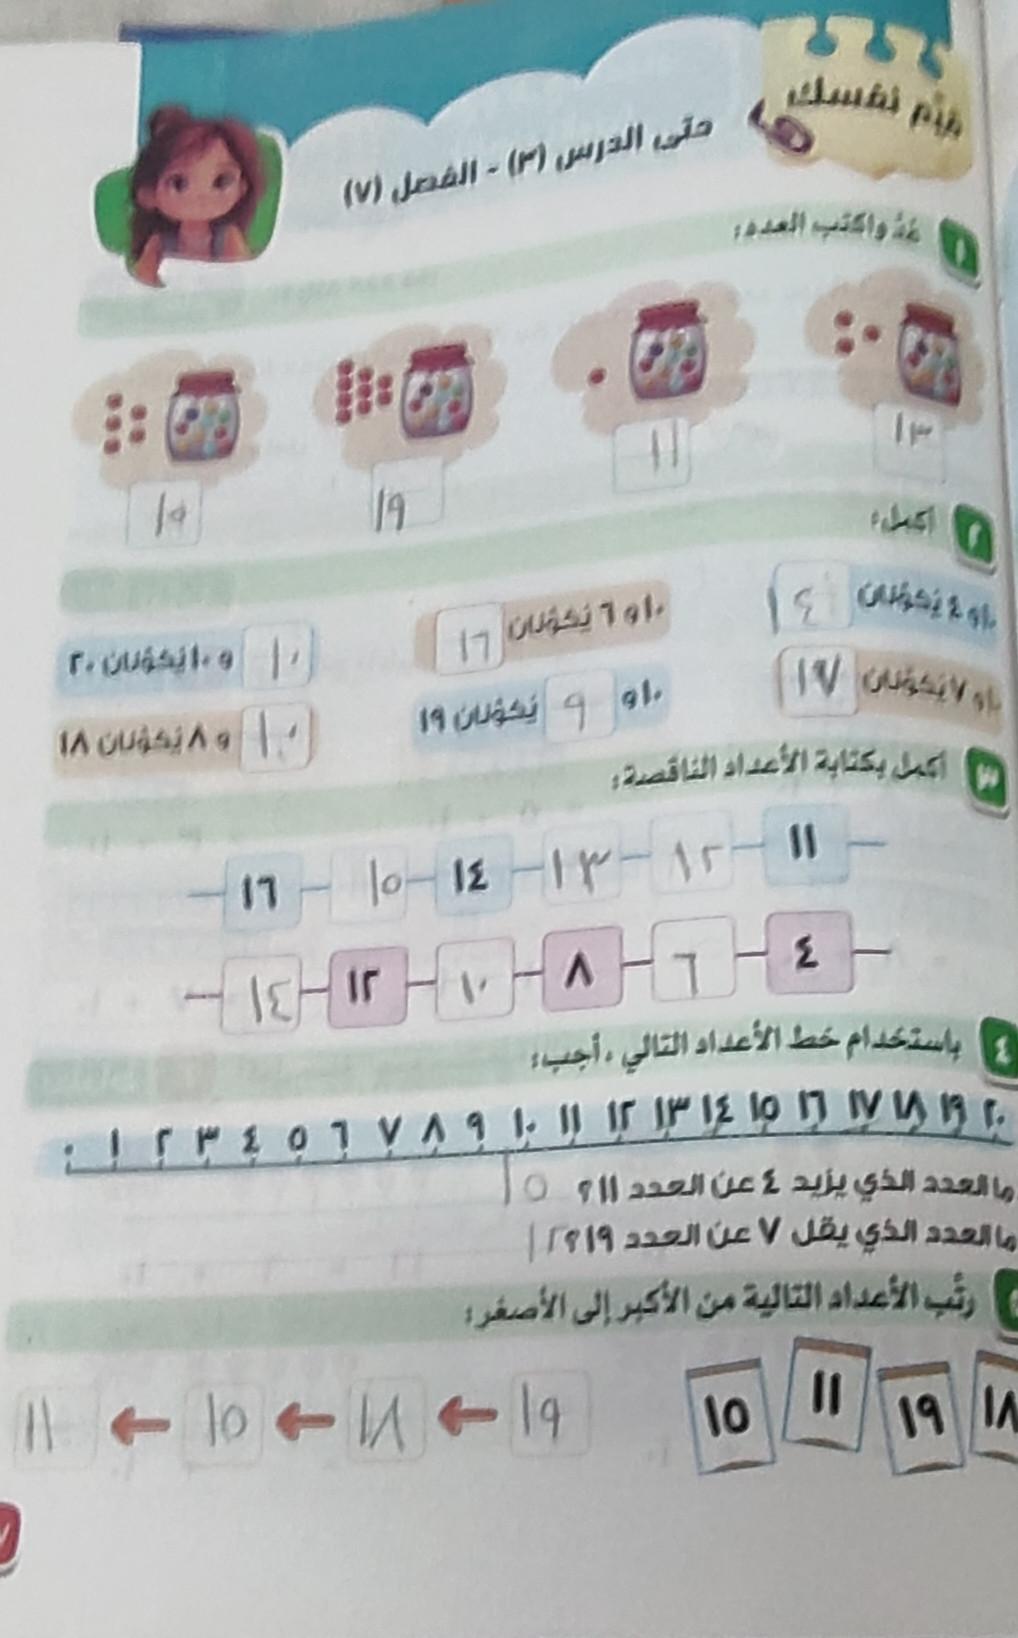 قيّم نفسك
حتى الدرس (٣) - الفصل (٧)
١ عُدَّ واكتب العدد:
١٣ ١١ ١٩ ١٥
٢ أكمل:
١٠ و ٤ يُكوِّنان ١٤
١٠ و ٦ يُكوِّنان ١٦
١٠ و ١٠ يُكوِّنان ٢٠
١٠ و ٧ يُكوِّنان ١٧
١٠ و ٩ يُكوِّنان ١٩
١٠ و ٨ يُكوِّنان ١٨
٣ أكمل بكتابة الأعداد الناقصة:
١١ ١٢ ١٣ ١٤ ١٥ ١٦
٤ ٦ ٨ ١٠ ١٢ ١٤
٤ باستخدام خط الأعداد التالي، أجب:
٠ ١ ٢ ٣ ٤ ٥ ٦ ٧ ٨ ٩ ١٠ ١١ ١٢ ١٣ ١٤ ١٥ ١٦ ١٧ ١٨ ١٩ ٢٠
ما العدد الذي يزيد ٤ عن العدد ١١؟ ١٥
ما العدد الذي يقل ٧ عن العدد ١٩؟ ١٢
رتِّب الأعداد التالية من الأكبر إلى الأصغر:
١٨ ١٩ ١١ ١٥
١٩ ← ١٨ ← ١٥ ← ١١